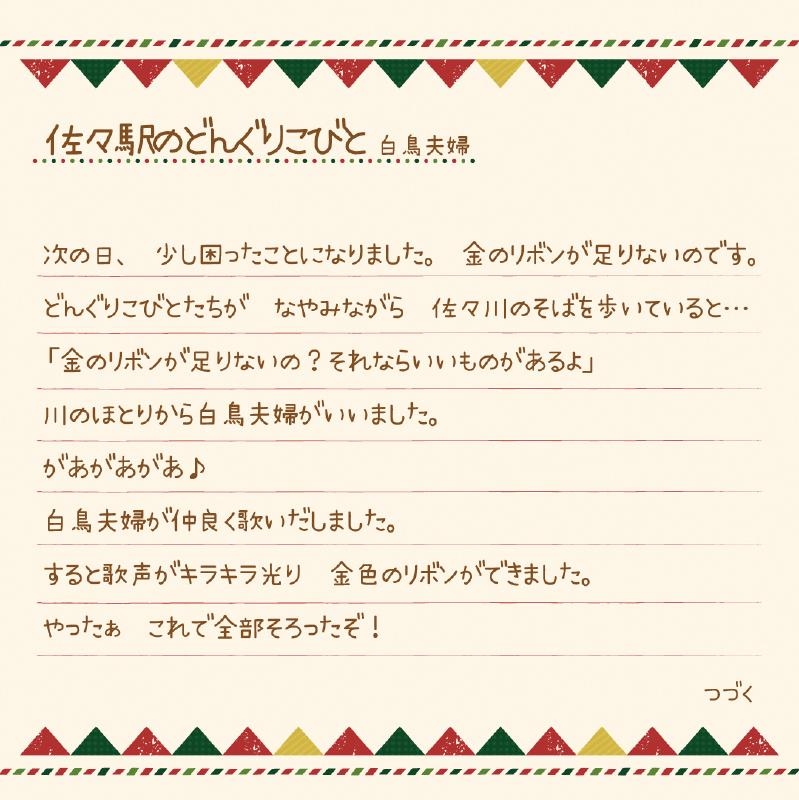 佐々駅のどんぐりこびと 白鳥夫婦
次の日、 少し困ったことになりました。 金のリボンが足りないのです。
どんぐりこびとたちが なやみながら 佐々川のそばを歩いていると…
「金のリボンが足りないの？それならいいものがあるよ」
川のほとりから白鳥夫婦がいいました。
があがあがあ♪
白鳥夫婦が仲良く歌いだしました。
すると歌声がキラキラ光り 金色のリボンができました。
やったぁ これで全部そろったぞ！
つづく